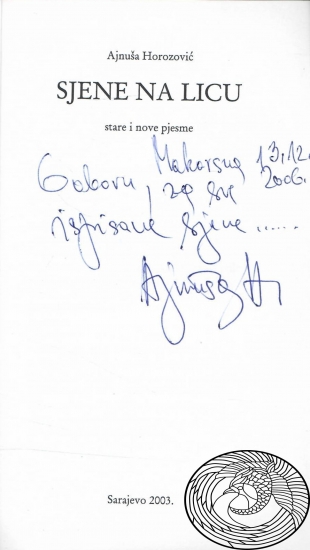 Ajnuša Horozović
SJENE NA LICU
stare i nove pjesme
Makarska 13.12.
Gaboru, za sve 2006.
ispisane sjene.....
Ajnuša H.
Sarajevo 2003.